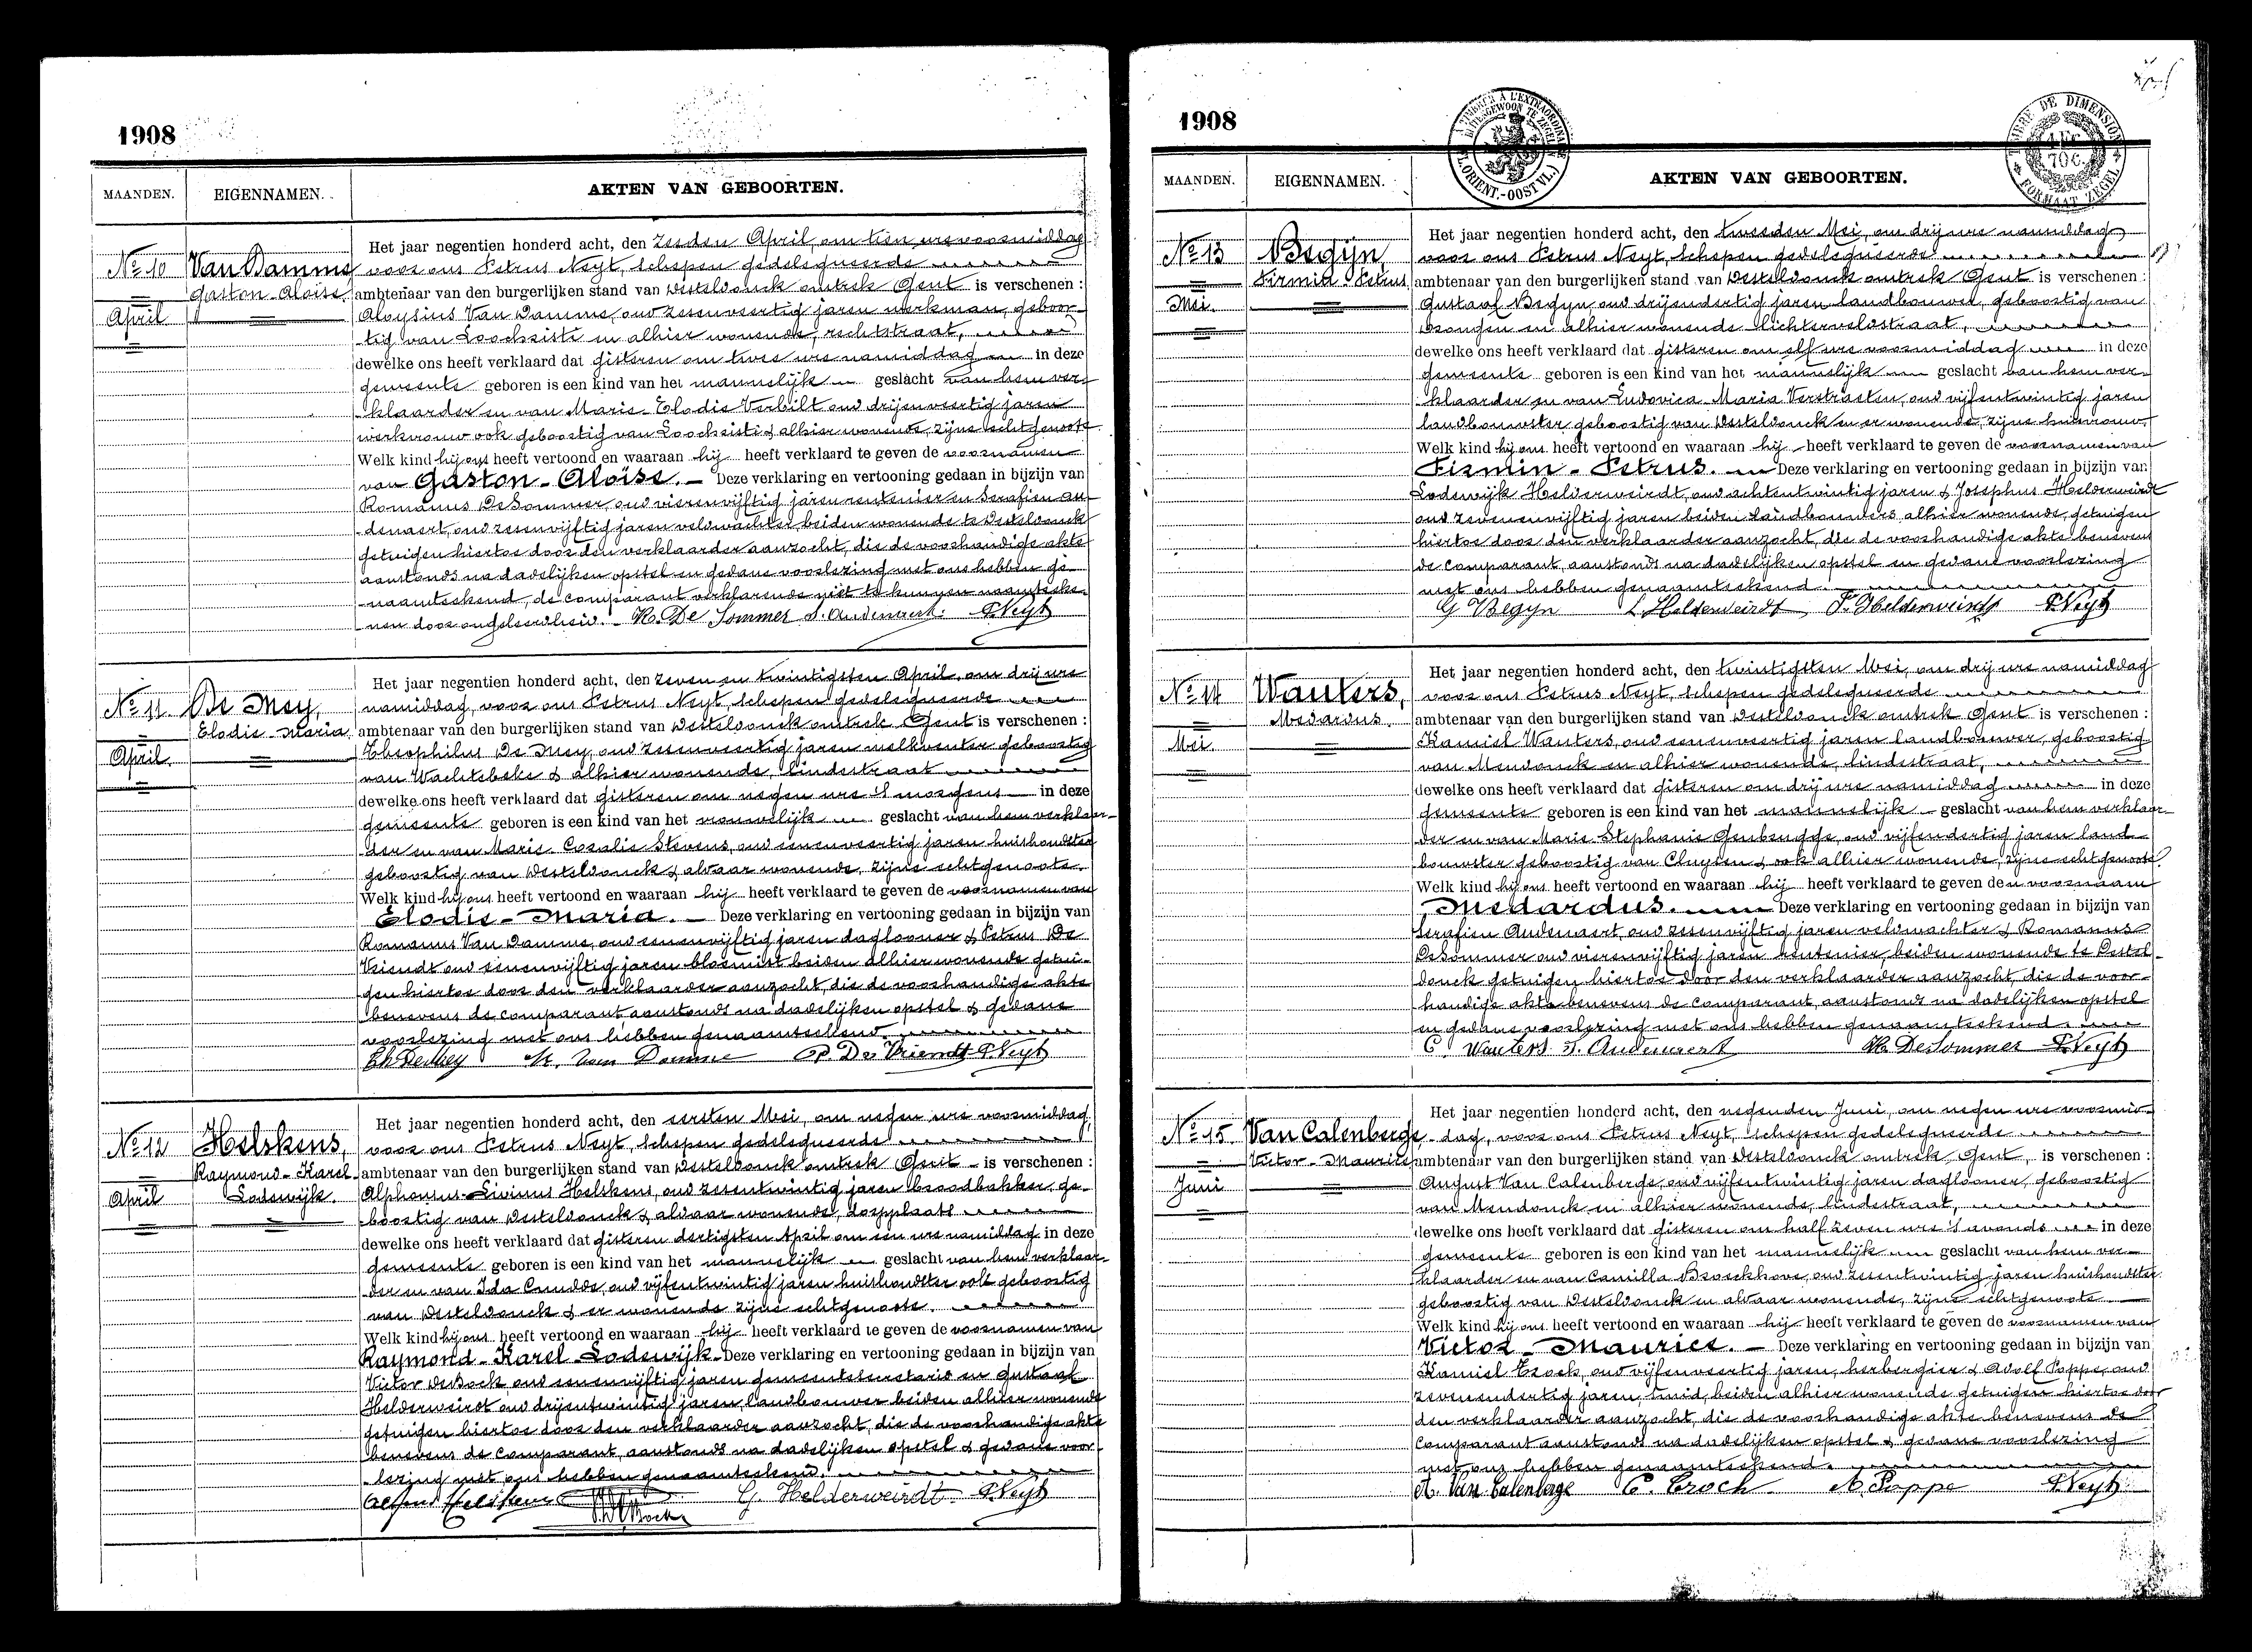 1908
MAANDEN. EIGENNAMEN. AKTEN VAN GEBOORTEN.
Het jaar negentien honderd acht, den zesden April, om tien ure voormiddag
No 10 Van Damme voor ons Petrus Neyt, schepen gedelegueerde
Gaston Aloïse ambtenaar van den burgerlijken stand van Desteldonck omtrek Gent is verschenen :
April Aloysius Van Damme, oud zesenveertig jaren werkman, geboor-
tig van Loochristi en alhier wonende, rechtstraat,
dewelke ons heeft verklaard dat gisteren om twee ure namiddag in deze
gemeente geboren is een kind van het mannelijk geslacht van hem ver-
klaarder en van Marie Elodie Verbilt oud drijenveertig jaren
werkvrouw ook geboortig van Loochristi & alhier wonende, zijne echtgenoote
Welk kind hij ons heeft vertoond en waaraan hij heeft verklaard te geven de voornamen
van Gaston-Aloïse. Deze verklaring en vertooning gedaan in bijzijn van
Romanus De Sommer, oud vierenvijftig jaren rentenier en Serafien Au-
denaert, oud zesenvijftig jaren veldwachter, beiden wonende te Desteldonck
getuigen hiertoe door den verklaarder aanzocht, die de voorhandige akte
aanstonds na dadelijken opstel en gedane voorlezing met ons hebben ge-
naamteekend, de comparant verklarende niet te kunnen naamteeke-
nen door ongeleerdheid. R. De Sommer S. Audenaert. P. Neyt
Het jaar negentien honderd acht, den zeven en twintigsten April, om drij ure
No 11. De Mey, namiddag, voor ons Petrus Neyt, schepen gedelegueerde
Elodie-Maria ambtenaar van den burgerlijken stand van Desteldonck omtrek Gent is verschenen :
April. Theophilus De Mey, oud zesenveertig jaren melkventer geboortig
van Wachtebeke & alhier wonende, lindestraat
dewelke ons heeft verklaard dat gisteren om negen ure 's morgens in deze
gemeente geboren is een kind van het vrouwelijk geslacht van hem verklaar-
der en van Marie Coralie Stevens, oud eenenveertig jaren huishoudster
geboortig van Desteldonck & aldaar wonende, zijne echtgenoote.
Welk kind hij ons heeft vertoond en waaraan hij heeft verklaard te geven de voornamen van
Elodie-Maria. Deze verklaring en vertooning gedaan in bijzijn van
Romanus Van Damme, oud eenenvijftig jaren daglooner & Petrus De
Vriendt oud eenenvijftig jaren bloemist beiden alhier wonende getui-
gen hiertoe door den verklaarder aanzocht, die de voorhandige akte
benevens de comparant aanstonds na dadelijken opstel & gedane
voorlezing met ons hebben genaamteekend.
Th. De Mey R. Van Damme P. De Vriendt P. Neyt
Het jaar negentien honderd acht, den eersten Mei, om negen ure voormiddag,
No 12 Helskens, voor ons Petrus Neyt, schepen gedelegueerde
Raymond-Karel ambtenaar van den burgerlijken stand van Desteldonck omtrek Gent is verschenen :
April Lodewijk. Alphonsus-Livinus Helskens, oud zesentwintig jaren broodbakker, ge-
boortig van Desteldonck & aldaar wonende, dorpplaats
dewelke ons heeft verklaard dat gisteren dertigsten April om een ure namiddag in deze
gemeente geboren is een kind van het mannelijk geslacht van hem verklaar-
der en van Ida Cnudde, oud vijfentwintig jaren huishoudster ook geboortig
van Desteldonck & er wonende zijne echtgenoote.
Welk kind hij ons heeft vertoond en waaraan hij heeft verklaard te geven de voornamen van
Raymond-Karel-Lodewijk Deze verklaring en vertooning gedaan in bijzijn van
Victor De Bock, oud eenenvijftig jaren gemeentesecretaris en Gustaaf
Helderweirdt oud drijentwintig jaren, landbouwer beiden alhier wonende
getuigen hiertoe door den verklaarder aanzocht, die de voorhandige akte
benevens de comparant, aanstonds na dadelijken opstel & gedane voor-
lezing met ons hebben genaamteekend.
Alfons Helskens V. De Bock G. Helderweirdt P. Neyt
1908
TIMBRE A L'EXTRAORDINAIRE
BUITENGEWOON TE ZEGELEN
(FL. ORIENT.-OOST VL.)
TIMBRE DE DIMENSION
FORMAAT ZEGEL
MAANDEN. EIGENNAMEN. AKTEN VAN GEBOORTEN.
Het jaar negentien honderd acht, den tweeden Mei, om drij ure namiddag
No 13 Begijn, voor ons Petrus Neyt, schepen gedelegueerde
Firmin-Petrus ambtenaar van den burgerlijken stand van Desteldonck omtrek Gent is verschenen :
Mei. Gustaaf Begyn oud drijendertig jaren landbouwer, geboortig van
Drongen en alhier wonende Lichterveldstraat,
dewelke ons heeft verklaard dat gisteren om elf ure voormiddag in deze
gemeente geboren is een kind van het mannelijk geslacht van hem ver-
klaarder en van Ludovica Maria Verstraeten, oud vijfentwintig jaren
landbouwster geboortig van Desteldonck en er wonende, zijne huisvrouw.
Welk kind hij ons heeft vertoond en waaraan hij heeft verklaard te geven de voornamen van
Firmin-Petrus. Deze verklaring en vertooning gedaan in bijzijn van
Lodewijk Helderweirdt, oud achtentwintig jaren & Josephus Helderweirdt
oud zevenenvijftig jaren beiden landbouwers alhier wonende, getuigen
hiertoe door den verklaarder aanzocht, die de voorhandige akte benevens
de comparant, aanstonds na dadelijken opstel en gedane voorlezing
met ons hebben genaamteekend.
G Begyn L. Helderweirdt J. Helderweirdt P. Neyt
Het jaar negentien honderd acht, den twintigsten Mei, om drij ure namiddag
No 14 Wauters, voor ons Petrus Neyt, schepen gedelegueerde
Medardus. ambtenaar van den burgerlijken stand van Desteldonck omtrek Gent is verschenen :
Mei. Kamiel Wauters, oud eenenveertig jaren landbouwer, geboortig
van Mendonck en alhier wonende, lindestraat,
dewelke ons heeft verklaard dat gisteren om drij ure namiddag in deze
gemeente geboren is een kind van het mannelijk geslacht van hem verklaar-
der en van Marie Stephanie Genbrugge, oud vijfendertig jaren land-
bouwster geboortig van Cluysen & ook alhier wonende, zijne echtgenoote.
Welk kind hij ons heeft vertoond en waaraan hij heeft verklaard te geven den voornaam
Medardus. Deze verklaring en vertooning gedaan in bijzijn van
Serafien Audenaert, oud zesenvijftig jaren veldwachter & Romanus
De Sommer oud vierenvijftig jaren rentenier, beiden wonende te Destel-
donck getuigen hiertoe door den verklaarder aanzocht die de voor-
handige akte benevens de comparant, aanstonds na dadelijken opstel
en gedane voorlezing met ons hebben genaamteekend.
C. Wauters S. Audenaert R. De Sommer P. Neyt
Het jaar negentien honderd acht, den negenden Juni, om negen ure voormid-
No 15 Van Calenberge dag, voor ons Petrus Neyt, schepen gedelegueerde
Victor-Maurice ambtenaar van den burgerlijken stand van Desteldonck omtrek Gent, is verschenen :
Juni August Van Calenberge, oud vijfentwintig jaren daglooner, geboortig
van Mendonck en alhier wonende, lindestraat,
dewelke ons heeft verklaard dat gisteren om half zeven ure 's avonds in deze
gemeente geboren is een kind van het mannelijk geslacht van hem ver-
klaarder en van Camilla Broeckhove, oud zesentwintig jaren huishoudster
geboortig van Desteldonck en aldaar wonende, zijne echtgenoote
Welk kind hij ons heeft vertoond en waaraan hij heeft verklaard te geven de voornamen van
Victor-Maurice. Deze verklaring en vertooning gedaan in bijzijn van
Kamiel Crock, oud vijfenveertig jaren, herbergier & Adolf Poppe, oud
zevenendertig jaren, smid, beiden alhier wonende getuigen hiertoe door
den verklaarder aanzocht, die de voorhandige akte benevens de
comparant aanstonds na dadelijken opstel & gedane voorlezing
met ons hebben genaamteekend.
A. Van Calenberge C. Crock A. Poppe P. Neyt